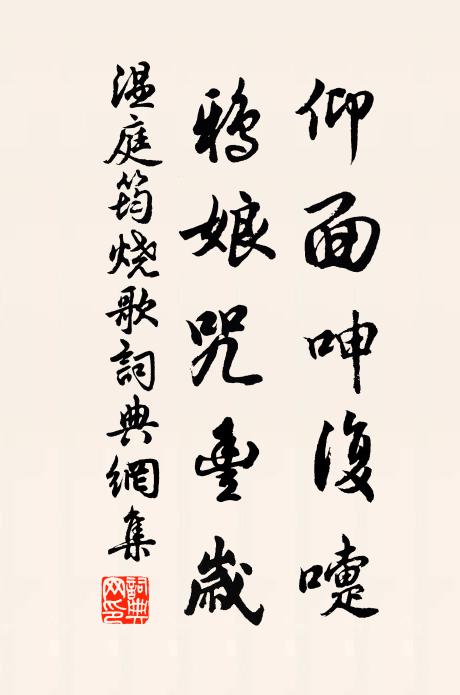 仰面呻復嚏
鴉娘咒豐歲
溫庭筠燒歌詞典網集
詞典網印